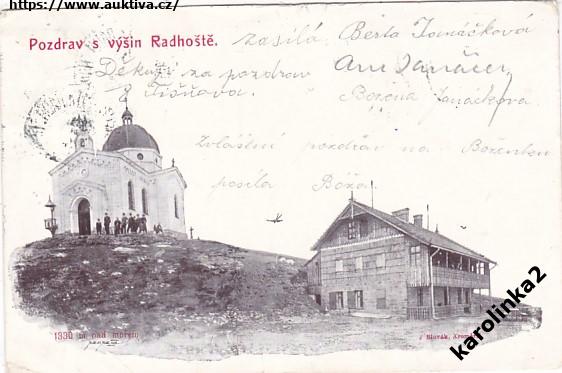 https://www.auktiva.cz/
Pozdrav s výšin Radhoště.
zasílá Berta Tomášková
Děkuji za pozdrav
z Tišňova.
Božena Janáčkova
Zvláštní pozdrav na Boženku
posílá Boža
1330 m nad mořem
J. Slovák, Krom
karolinka2